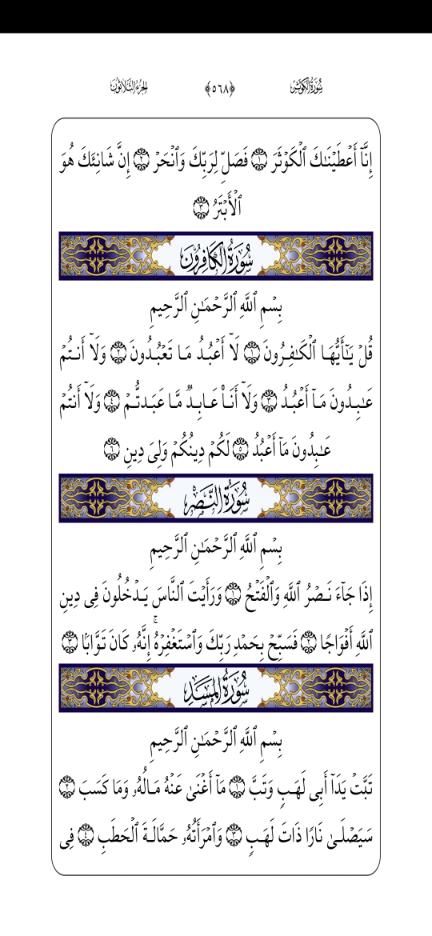 سُورَةُ الكَوْثَرِ ﴿٥٦٨﴾ الجُزْءُ الثَّلَاثُونَ
إِنَّآ أَعْطَيْنَٰكَ ٱلْكَوْثَرَ ١ فَصَلِّ لِرَبِّكَ وَٱنْحَرْ ٢ إِنَّ شَانِئَكَ هُوَ
ٱلْأَبْتَرُ ٣
سُورَةُ الكَافِرُونَ
بِسْمِ ٱللَّهِ ٱلرَّحْمَٰنِ ٱلرَّحِيمِ
قُلْ يَٰٓأَيُّهَا ٱلْكَٰفِرُونَ ١ لَآ أَعْبُدُ مَا تَعْبُدُونَ ٢ وَلَآ أَنتُمْ
عَٰبِدُونَ مَآ أَعْبُدُ ٣ وَلَآ أَنَا۠ عَابِدٌ مَّا عَبَدتُّمْ ٤ وَلَآ أَنتُمْ
عَٰبِدُونَ مَآ أَعْبُدُ ٥ لَكُمْ دِينُكُمْ وَلِىَ دِينِ ٦
سُورَةُ النَّصْرِ
بِسْمِ ٱللَّهِ ٱلرَّحْمَٰنِ ٱلرَّحِيمِ
إِذَا جَآءَ نَصْرُ ٱللَّهِ وَٱلْفَتْحُ ١ وَرَأَيْتَ ٱلنَّاسَ يَدْخُلُونَ فِى دِينِ
ٱللَّهِ أَفْوَاجًا ٢ فَسَبِّحْ بِحَمْدِ رَبِّكَ وَٱسْتَغْفِرْهُ ۚ إِنَّهُۥ كَانَ تَوَّابًۢا ٣
سُورَةُ المَسَدِ
بِسْمِ ٱللَّهِ ٱلرَّحْمَٰنِ ٱلرَّحِيمِ
تَبَّتْ يَدَآ أَبِى لَهَبٍ وَتَبَّ ١ مَآ أَغْنَىٰ عَنْهُ مَالُهُۥ وَمَا كَسَبَ ٢
سَيَصْلَىٰ نَارًا ذَاتَ لَهَبٍ ٣ وَٱمْرَأَتُهُۥ حَمَّالَةَ ٱلْحَطَبِ ٤ فِى